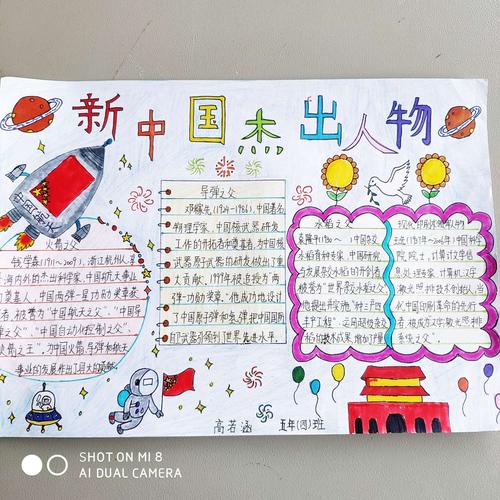 新中国杰出人物
火箭之父
钱学森(1911~2009),浙江杭州人,享
海内外的杰出科学家,中国航天事业
的奠基人,中国两弹一星功勋奖章获
者,被誉为"中国航天之父"、"中国导
弹之父"、"中国自动化控制之父"、
火箭之王",为中国火箭、导弹和航天
事业的发展作出了巨大的贡献。
导弹之父
邓稼先(1924-1986),中国著名
物理学家,中国核武器研发
工作的开拓者和奠基者,为中国核
武器原子武器的研发做出了重
大贡献,1999年被追授为"两
弹一星功勋奖章。"他成功地设计
了中国原子弹和氢弹,把中国国防
自卫武器引领到了世界先进水平。
水稻之父
袁隆平(1930~ ),中国杂交
水稻育种专家,中国研究
与发展杂交水稻的开创者,
被誉为"世界杂交水稻之父"
他提出并实施"种三产四
丰产工程",运用超级杂交
稻的技术成果,增加了产量
王选(1937-2006年)中国科学
院院士,计算机文字信
息处理专家,计算机汉字
激光照排技术创始人,当
代中国印刷革命的先行
者,被成为汉字激光照排
系统之父"。
高若涵 五年(四)班
SHOT ON MI 8
AI DUAL CAMERA